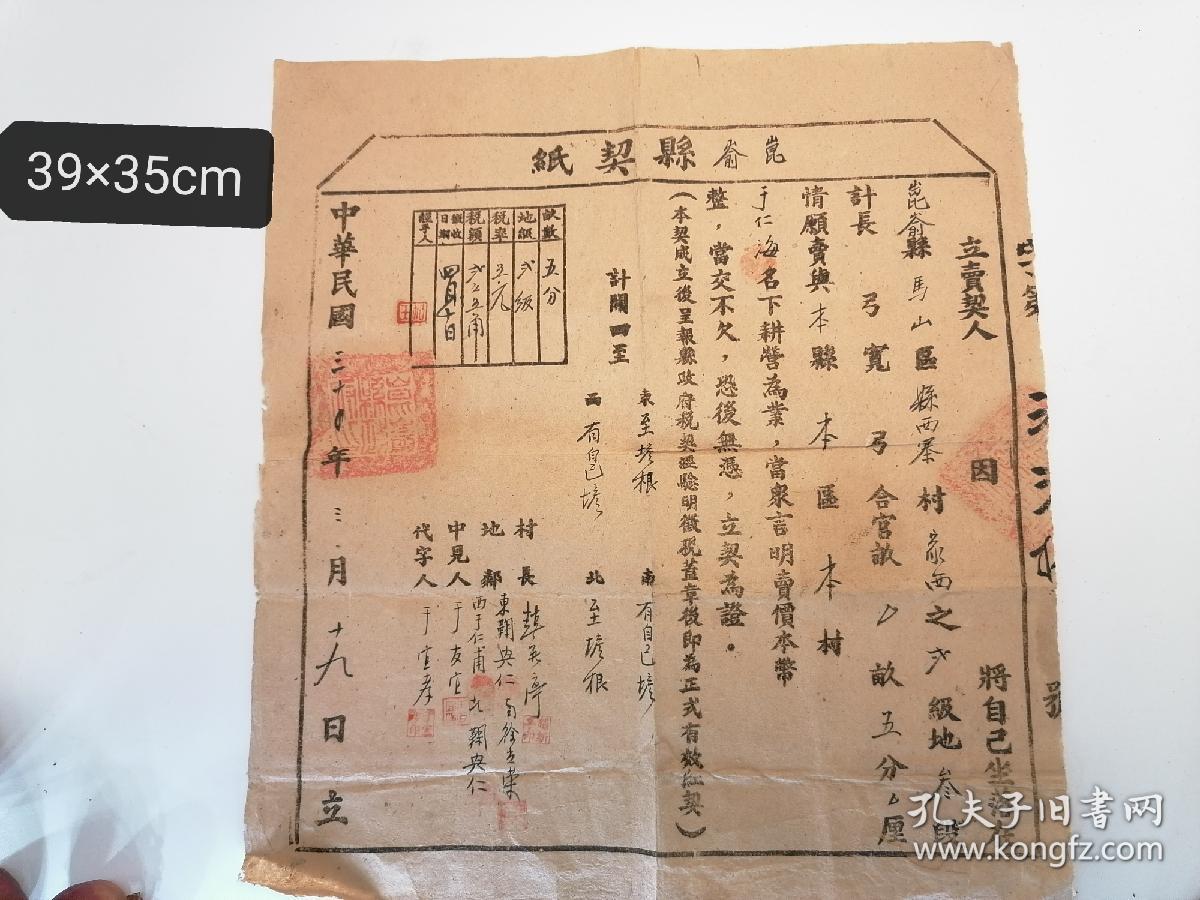 39×35cm
崑崙縣契紙
號
立賣契人 因 將自己坐落在
崑崙縣馬山區 縣西 村 家西之弍級地叁段
計長 弓寬 弓合官畝 0 畝五分 厘
情願賣與本縣本區本村
于仁海名下耕營為業,當衆言明賣價本幣
整,當交不欠,恐後無憑,立契為證。
(本契成立後呈報縣政府稅契經驗明徵稅蓋章後即為正式有效紅契)
計開四至
東至 根 南有自己
西有自己 北至 根
畝數 五分
地級 弍級
稅率 五元
稅額 弍 五角
徵收日期 四月 十日
經手人
村長
地鄰 東 央仁 南徐 西于仁甫 北 央仁
中見人 于友宜
代字人 于宜孝
中華民國三十0年三月十九日立
孔夫子旧书网
www.kongfz.com